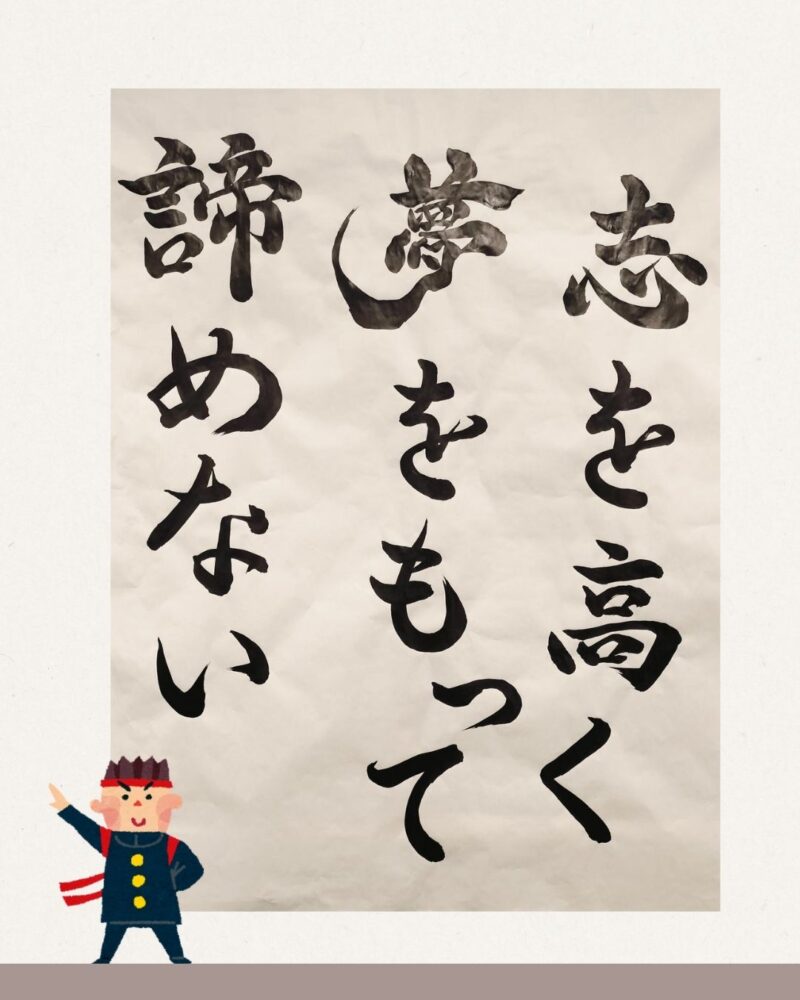 志を高く
夢をもって
諦めない